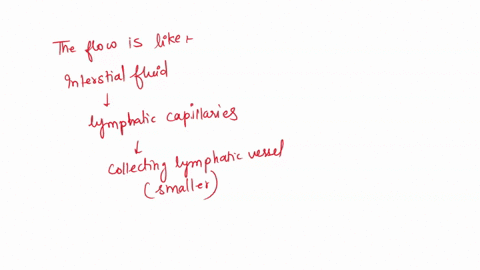 The flow is like:-
Interstial fluid
↓
lymphatic capillaries
↓
collecting lymphatic vessel
(smaller)